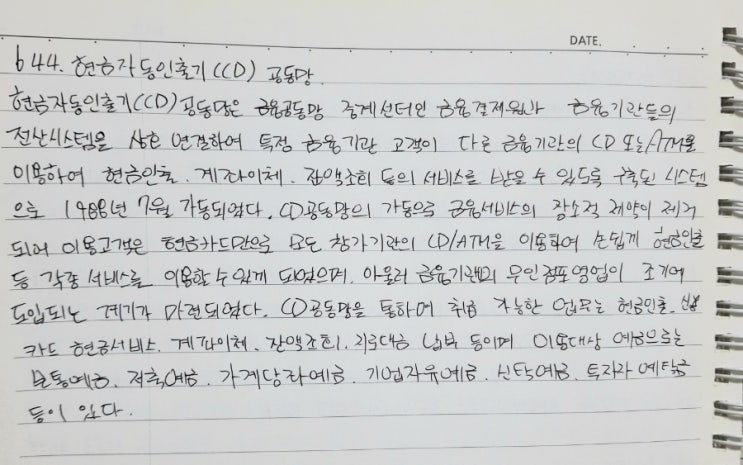 DATE.
644. 현금자동인출기(CD) 공동망
현금자동인출기(CD)공동망은 금융공동망 중계센터인 금융결제원과 금융기관들의
전산시스템을 상호 연결하여 특정 금융기관 고객이 다른 금융기관의 CD 또는 ATM을
이용하여 현금인출. 계좌이체. 잔액조회 등의 서비스를 받을 수 있도록 구축된 시스템
으로 1988년 7월 가동되었다. CD공동망의 가동으로 금융서비스의 장소적 제약이 제거
되어 이용고객은 현금카드만으로 모든 참가기관의 CD/ATM을 이용하여 손쉽게 현금인출
등 각종 서비스를 이용할 수 있게 되었으며. 아울러 금융기관의 무인점포영업이 조기에
도입되는 계기가 마련되었다. CD공동망을 통하여 취급 가능한 업무는 현금인출. 신용
카드 현금서비스. 계좌이체. 잔액조회. 지로대금 납부 등이며 이용대상 예금으로는
보통예금. 저축예금. 가계당좌예금. 기업자유예금. 신탁예금. 투자자 예탁금
등이 있다.